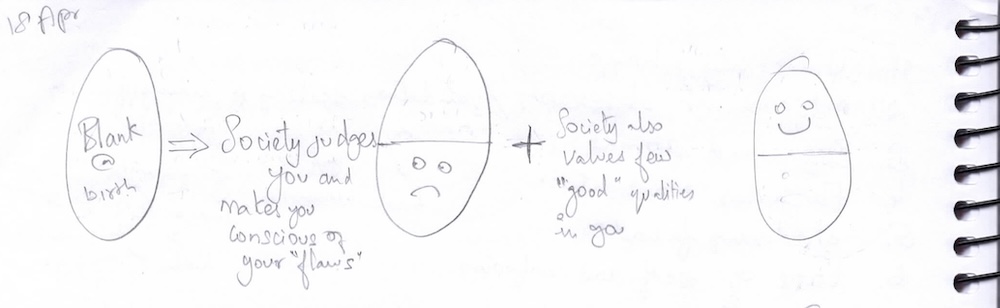 18 Apr
Blank
@
birth
⇒
Society judges
you and
makes you
conscious of
your "flaws"
+
Society also
values few
"good" qualities
in you